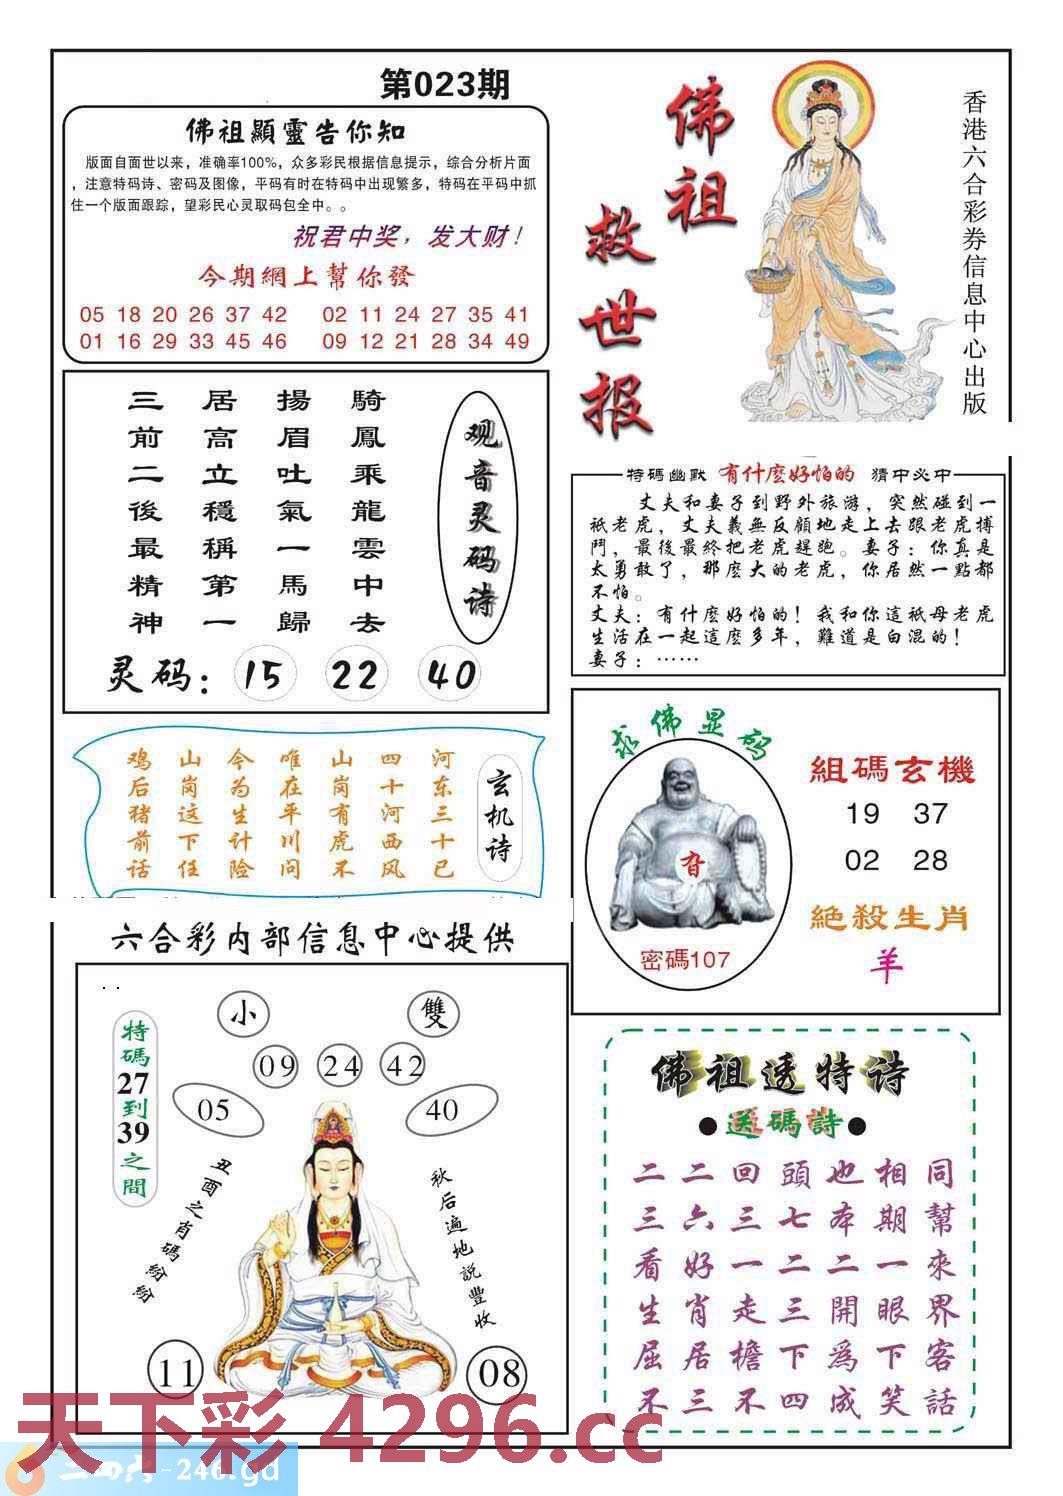 第023期
佛祖顯靈告你知
版面自面世以来，准确率100%，众多彩民根据信息提示，综合分析片面
，注意特码诗、密码及图像，平码有时在特码中出现繁多，特码在平码中抓
住一个版面跟踪，望彩民心灵取码包全中。。
祝君中奖，发大财！
今期網上幫你發
05 18 20 26 37 42 02 11 24 27 35 41
01 16 29 33 45 46 09 12 21 28 34 49
佛祖
救世报
香港六合彩券信息中心出版
观音灵码诗
騎鳳乘龍雲中去
揚眉吐氣一馬歸
居高立穩稱第一
三前二後最精神
灵码：15 22 40
特碼幽默 有什麽好怕的 猜中必中
丈夫和妻子到野外旅游，突然碰到一
祇老虎，丈夫義無反顧地走上去跟老虎搏
鬥，最後最終把老虎趕跑。妻子：你真是
太勇敢了，那麽大的老虎，你居然一點都
不怕。
丈夫：有什麽好怕的！我和你這祇母老虎
生活在一起這麽多年，難道是白混的！
妻子：……
玄机诗
河东三十已
四十河西风
山岗有虎不
唯在平川问
今为生计险
山岗这下任
鸡后猪前话
求佛显码
密碼107
組碼玄機
19 37
02 28
絶殺生肖
羊
六合彩内部信息中心提供
小 雙
09 24 42
05 40
特碼27到39之間
丑酉之肖碼紛紛
秋后遍地説豐收
11 08
佛祖透特诗
●送碼詩●
二二回頭也相同
三六三七本期幫
看好一二二一來
生肖走三開眼界
屈居檐下爲下客
不三不四成笑話
天下彩 4296.cc
二四六-246.gd